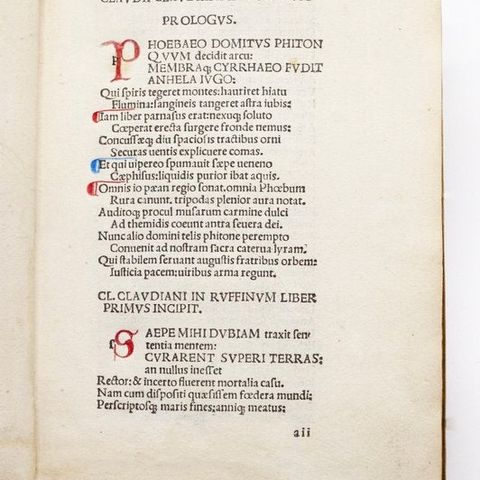 PROLOGVS.
PHOEBAEO DOMITVS PHITON
QVVM decidit arcu:
MEMBRAq; CYRRHAEO FVDIT
ANHELA IVGO:
Qui spiris tegeret montes: hauriret hiatu
Flumina: sangineis tangeret astra iubis:
Iam liber parnasus erat: nexuq; soluto
Cœperat erecta surgere fronde nemus:
Concussæq; diu spaciosis tractibus orni
Securas uentis explicuere comas.
Et qui uipereo spumauit sæpe ueneno
Cæphisus: liquidis purior ibat aquis.
Omnis io pæan regio sonat. omnia Phœbum
Rura canunt. tripodas plenior aura notat.
Auditoq; procul musarum carmine dulci
Ad themidis coeunt antra seuera dei.
Nunc alio domini telis phitone perempto
Conuenit ad nostram sacra caterua lyram.
Qui stabilem seruant augustis fratribus orbem:
Iusticia pacem: uiribus arma regunt.
CL. CLAVDIANI IN RVFFINVM LIBER
PRIMVS INCIPIT.
SAEPE MIHI DVBIAM traxit sen
tentia mentem:
CVRARENT SVPERI TERRAS:
an nullus inesset
Rector: & incerto fluerent mortalia casu.
Nam cum dispositi quæsissem fœdera mundi:
Perscriptosq; maris fines: anniq; meatus:
aii